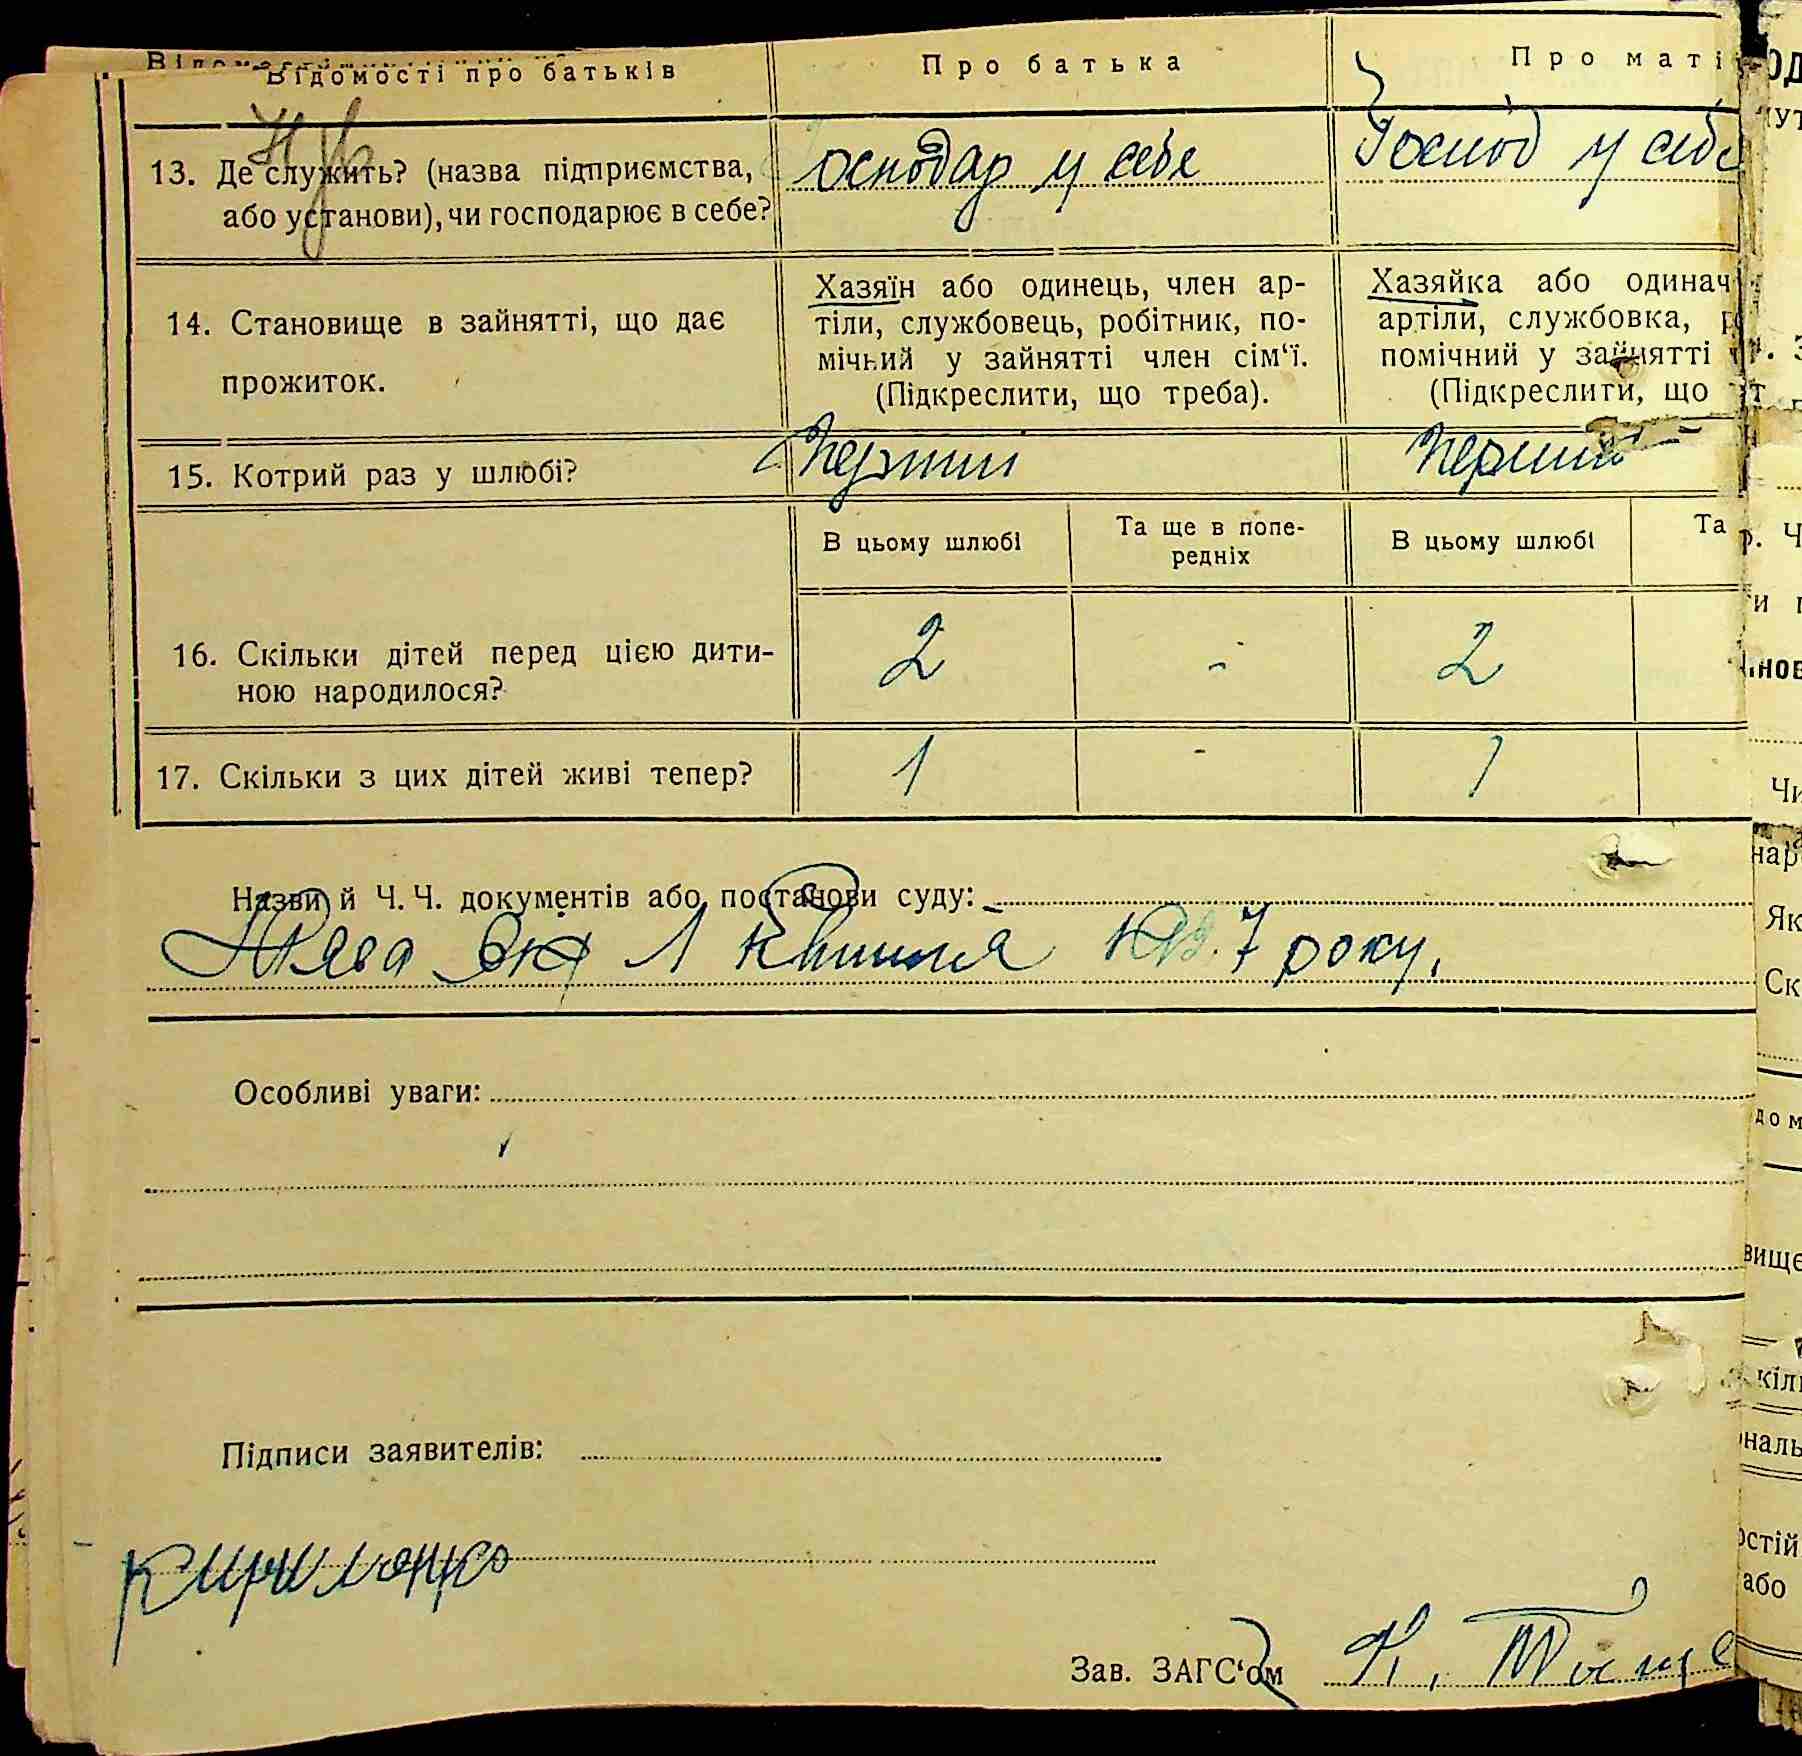 Відомості про батьків
Про батька
Про маті
13. Де служить? (назва підприємства,
або установи), чи господарює в себе?
Господар у себе
Господ у себе
14. Становище в зайнятті, що дає
прожиток.
Хазяїн або одинець, член ар-
тіли, службовець, робітник, по-
мічний у зайнятті член сім‘ї.
(Підкреслити, що треба).
Хазяйка або одинач
артіли, службовка,
помічний у зайнятті
(Підкреслити, що
15. Котрий раз у шлюбі?
Перший
Перший
В цьому шлюбі
Та ще в попе-
редніх
В цьому шлюбі
Та
16. Скільки дітей перед цією дити-
ною народилося?
2
-
2
17. Скільки з цих дітей живі тепер?
1
-
1
Назви й Ч. Ч. документів або постанови суду:
від 1 Квітня 7 року.
Особливі уваги:
Підписи заявителів:
Кириленко
Зав. ЗАГС‘ом К.